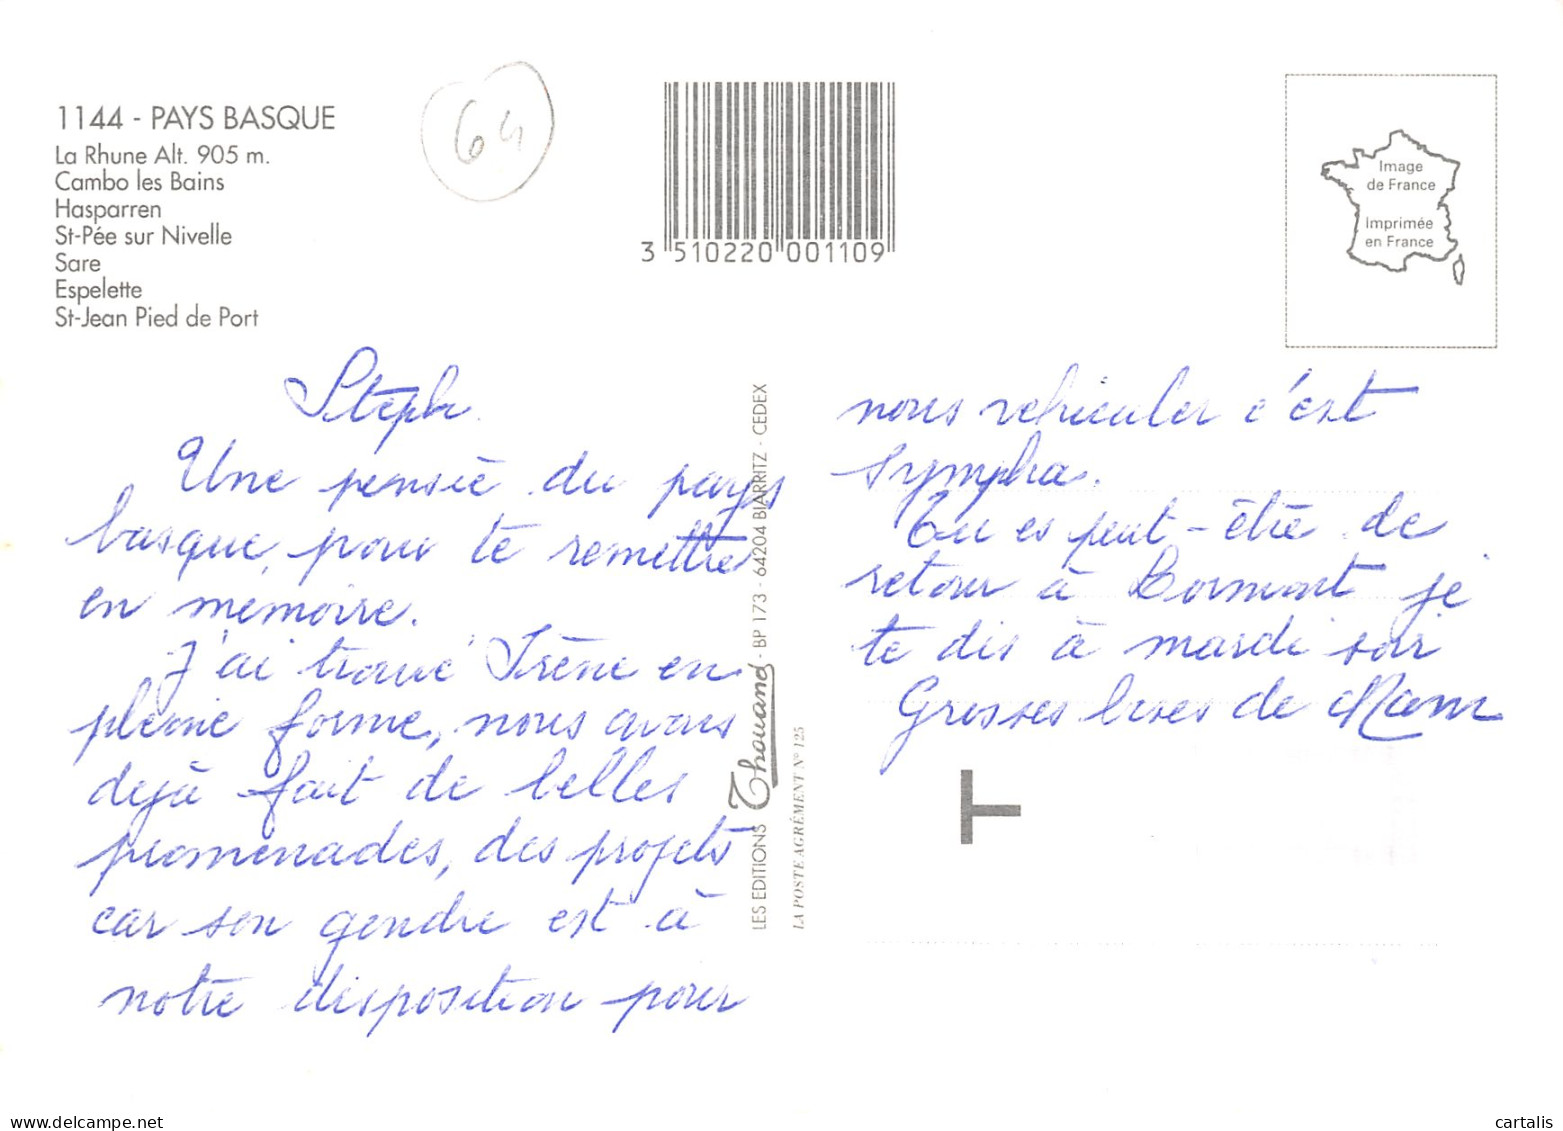 1144 - PAYS BASQUE
La Rhune Alt. 905 m.
Cambo les Bains
Hasparren
St-Pée sur Nivelle
Sare
Espelette
St-Jean Pied de Port
64
3 510220 001109
Image
de France
Imprimée
en France
Steph.
Une pensée du pays
basque, pour te remettre
en mémoire.
J'ai trouvé Irène en
pleine forme, nous avons
déjà fait de belles
promenades, des projets
car son gendre est à
notre disposition pour
LES EDITIONS Thouand - BP 173 - 64204 BIARRITZ - CEDEX
LA POSTE AGRÉMENT N° 125
nous véhiculer c'est
sympha.
Tu es peut-être de
retour à Lormont je
te dis à mardi soir
Grosses bises de Mam
T
cartalis